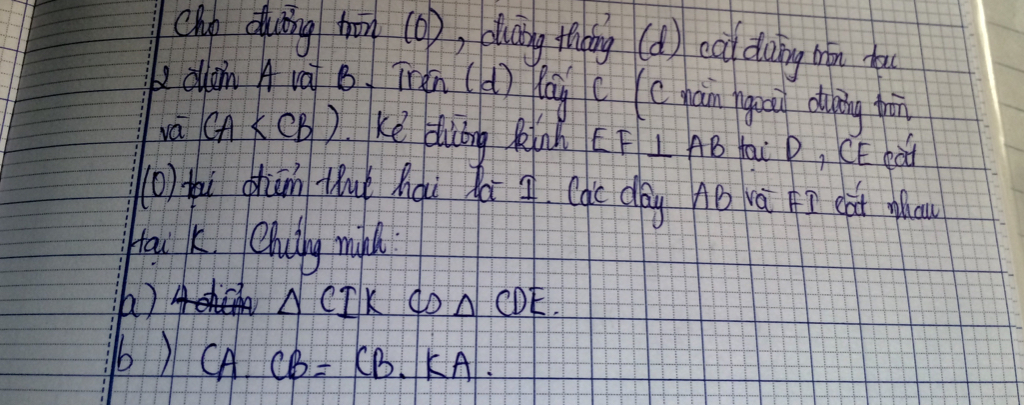 Cho đường tròn (O), đường thẳng (d) cắt đường tròn tại
2 điểm A và B. Trên (d) lấy C (C nằm ngoài đường tròn
và CA < CB). Kẻ đường kính EF ⊥ AB tại D, CE cắt
(O) tại điểm thứ hai là I. Các dây AB và FI cắt nhau
tại K. Chứng minh:
a) Δ CIK ∽ Δ CDE.
b) CA. CB = CB. KA.